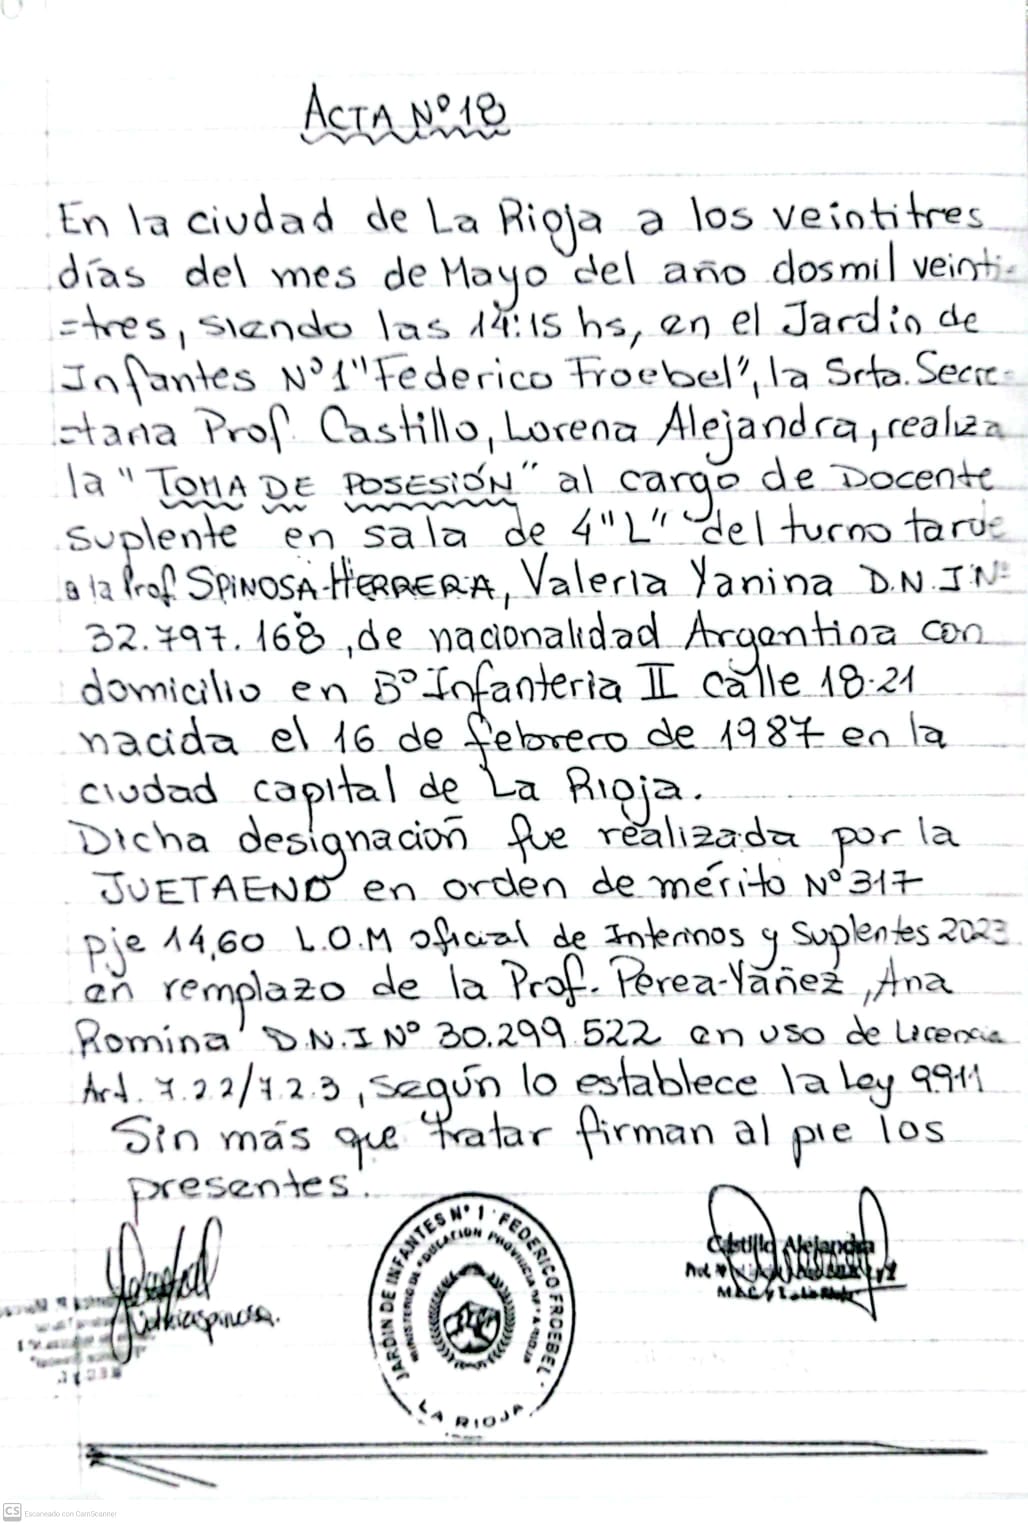 ACTA Nº 18
En la ciudad de La Rioja a los veintitres
días del mes de Mayo del año dosmil veinti-
=tres, siendo las 14:15 hs, en el Jardin de
Infantes Nº1 "Federico Froebel", la Srta. Secre-
=taria Prof. Castillo, Lorena Alejandra, realiza
la "TOMA DE POSESIÓN" al cargo de Docente
suplente en sala de 4 "L" del turno tarde
a la Prof SPINOSA-HERRERA, Valeria Yanina D.N.I Nº
32.797.168, de nacionalidad Argentina con
domicilio en Bº Infanteria II calle 18-21
nacida el 16 de febrero de 1987 en la
ciudad capital de La Rioja.
Dicha designación fue realizada por la
JUETAENO en orden de mérito Nº 317
pje 14,60 L.O.M oficial de Interinos y Suplentes 2023
en remplazo de la Prof. Perea-Yañez, Ana
Romina D.N.I Nº 30.299.522 en uso de Licencia
Art. 7.2.2/7.2.3, según lo establece la Ley 9911
Sin más que tratar firman al pie los
presentes.
JARDIN DE INFANTES Nº 1 · FEDERICO FROEBEL ·
MINISTERIO DE EDUCACION PROVINCIA DE LA RIOJA
LA RIOJA
Castillo Alejandra
CS Escaneado con CamScanner